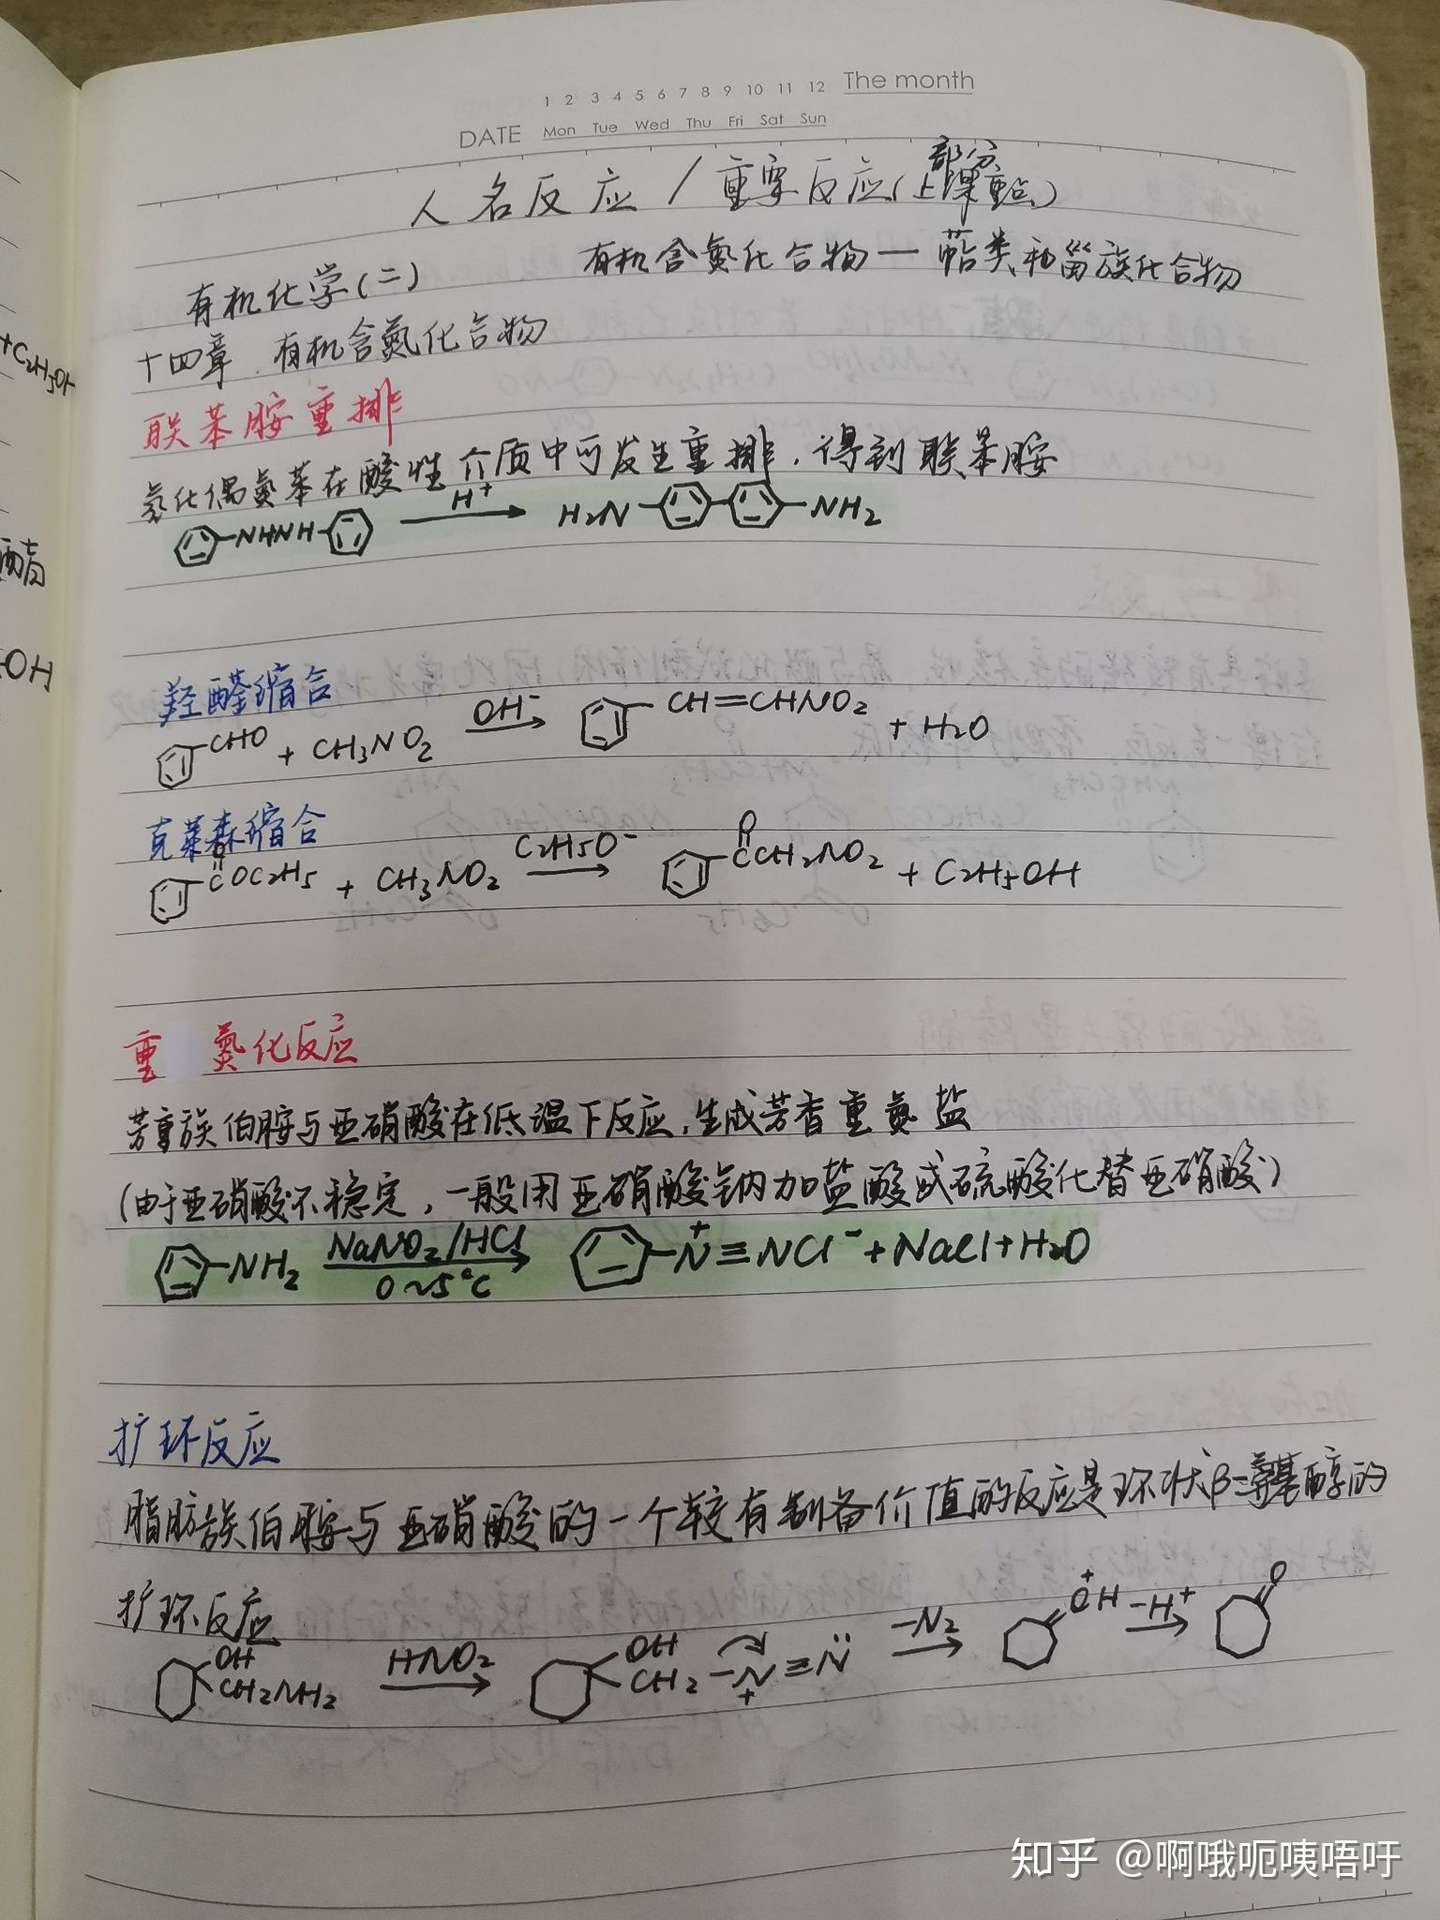 1 2 3 4 5 6 7 8 9 10 11 12 The month
DATE Mon Tue Wed Thu Fri Sat Sun
人名反应/重要反应(部分上课重点)
有机化学(二) 有机含氮化合物—萜类和甾族化合物
十四章.有机含氮化合物
联苯胺重排
氢化偶氮苯在酸性介质中可发生重排,得到联苯胺
-NHNH- H⁺ H₂N- -NH₂
羟醛缩合
CHO + CH₃NO₂ OH⁻ CH=CHNO₂ + H₂O
克莱森缩合
COC₂H₅ + CH₃NO₂ C₂H₅O⁻ CCH₂NO₂ + C₂H₅OH
O O
重氮化反应
芳香族伯胺与亚硝酸在低温下反应,生成芳香重氮盐
(由于亚硝酸不稳定,一般用亚硝酸钠加盐酸或硫酸化替亚硝酸)
-NH₂ NaNO₂/HCl 0~5°C -N⁺≡NCl⁻+NaCl+H₂O
扩环反应
脂肪族伯胺与亚硝酸的一个较有制备价值的反应是环状β-氨基醇的
扩环反应
OH CH₂NH₂ HNO₂ OH CH₂-N⁺≡N̈ -N₂ O⁺H -H⁺ O
+C₂H₅OH
酯
OH
知乎 @啊哦呃咦唔吁